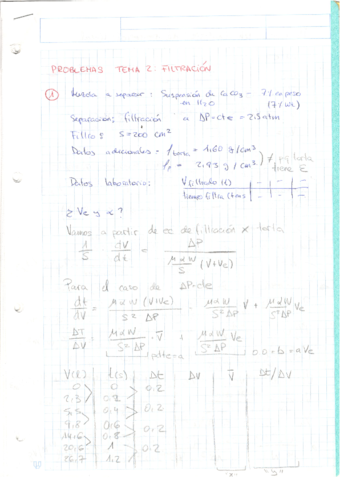 PROBLEMAS TEMA 2: FILTRACIÓN
① Mezcla a separar: Suspensión de CaCO3 - 7% en peso
en H2O (7% w)
Separación: filtración a ΔP=cte = 2,5 atm
Filtro: S=200 cm²
Datos adicionales = ρtorta = 1,60 g/cm³
ρp = 2,93 g/cm³ ≠ pq torta tiene E
Datos laboratorio: V filtrado (l) - -
tiempo filtra - -
¿Ve y α?
Vamos a partir de ec de filtración x torta
1/S dV/dt = ΔP / (μαW/S (V+Ve))
Para el caso de ΔP=cte
dt/dV = μαW (V+Ve) / S²ΔP = μαW/S²ΔP V + μαW/S²ΔP Ve
ΔT/ΔV = μαW/S²ΔP V̄ + μαW/S²ΔP Ve
V(l) t(s) Δt ΔV V̄ Δt/ΔV
0 0 0,2
2,3 0,2
0,4 0,2
9,8 0,6
14,6 0,8 0,2
20,6 1 0,2
26,7 1,2
"x" "y"